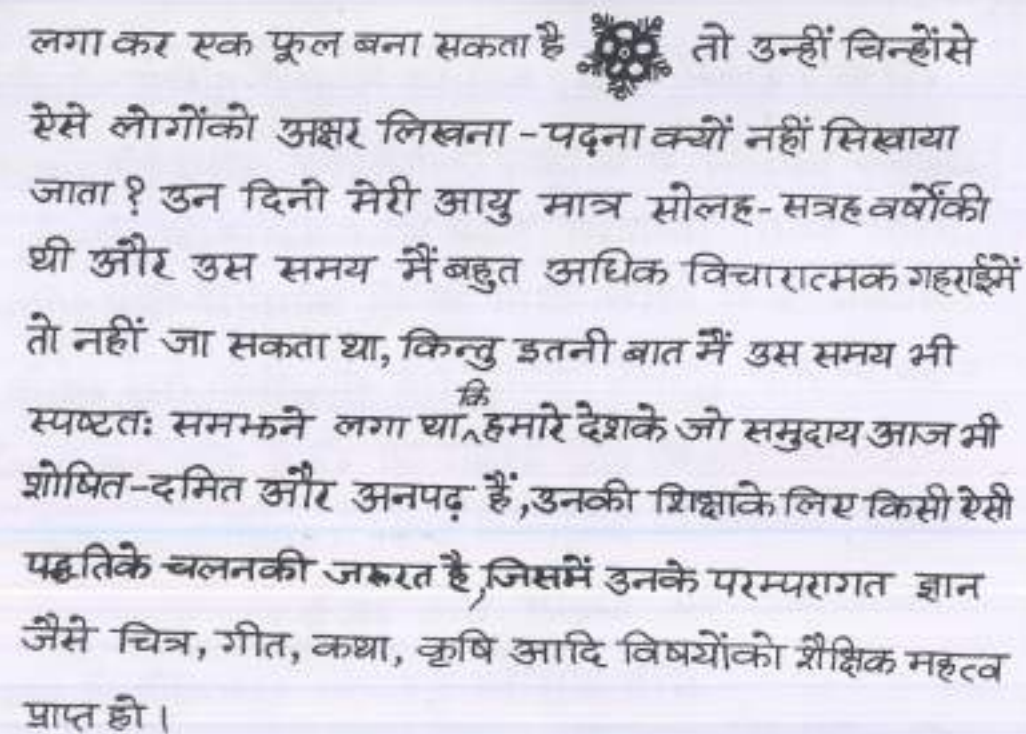 लगा कर एक फूल बना सकता है तो उन्हीं चिन्होंसे
ऐसे लोगोंको अक्षर लिखना - पढ़ना क्यों नहीं सिखाया
जाता ? उन दिनो मेरी आयु मात्र सोलह-सत्रह वर्षोंकी
थी और उस समय मैं बहुत अधिक विचारात्मक गहराईमें
तो नहीं जा सकता था, किन्तु इतनी बात मैं उस समय भी
स्पष्टतः समझने लगा था कि हमारे देशके जो समुदाय आज भी
शोषित-दमित और अनपढ़ हैं, उनकी शिक्षाके लिए किसी ऐसी
पद्धतिके चलनकी जरूरत है, जिसमें उनके परम्परागत ज्ञान
जैसे चित्र, गीत, कथा, कृषि आदि विषयोंको शैक्षिक महत्व
प्राप्त हो।